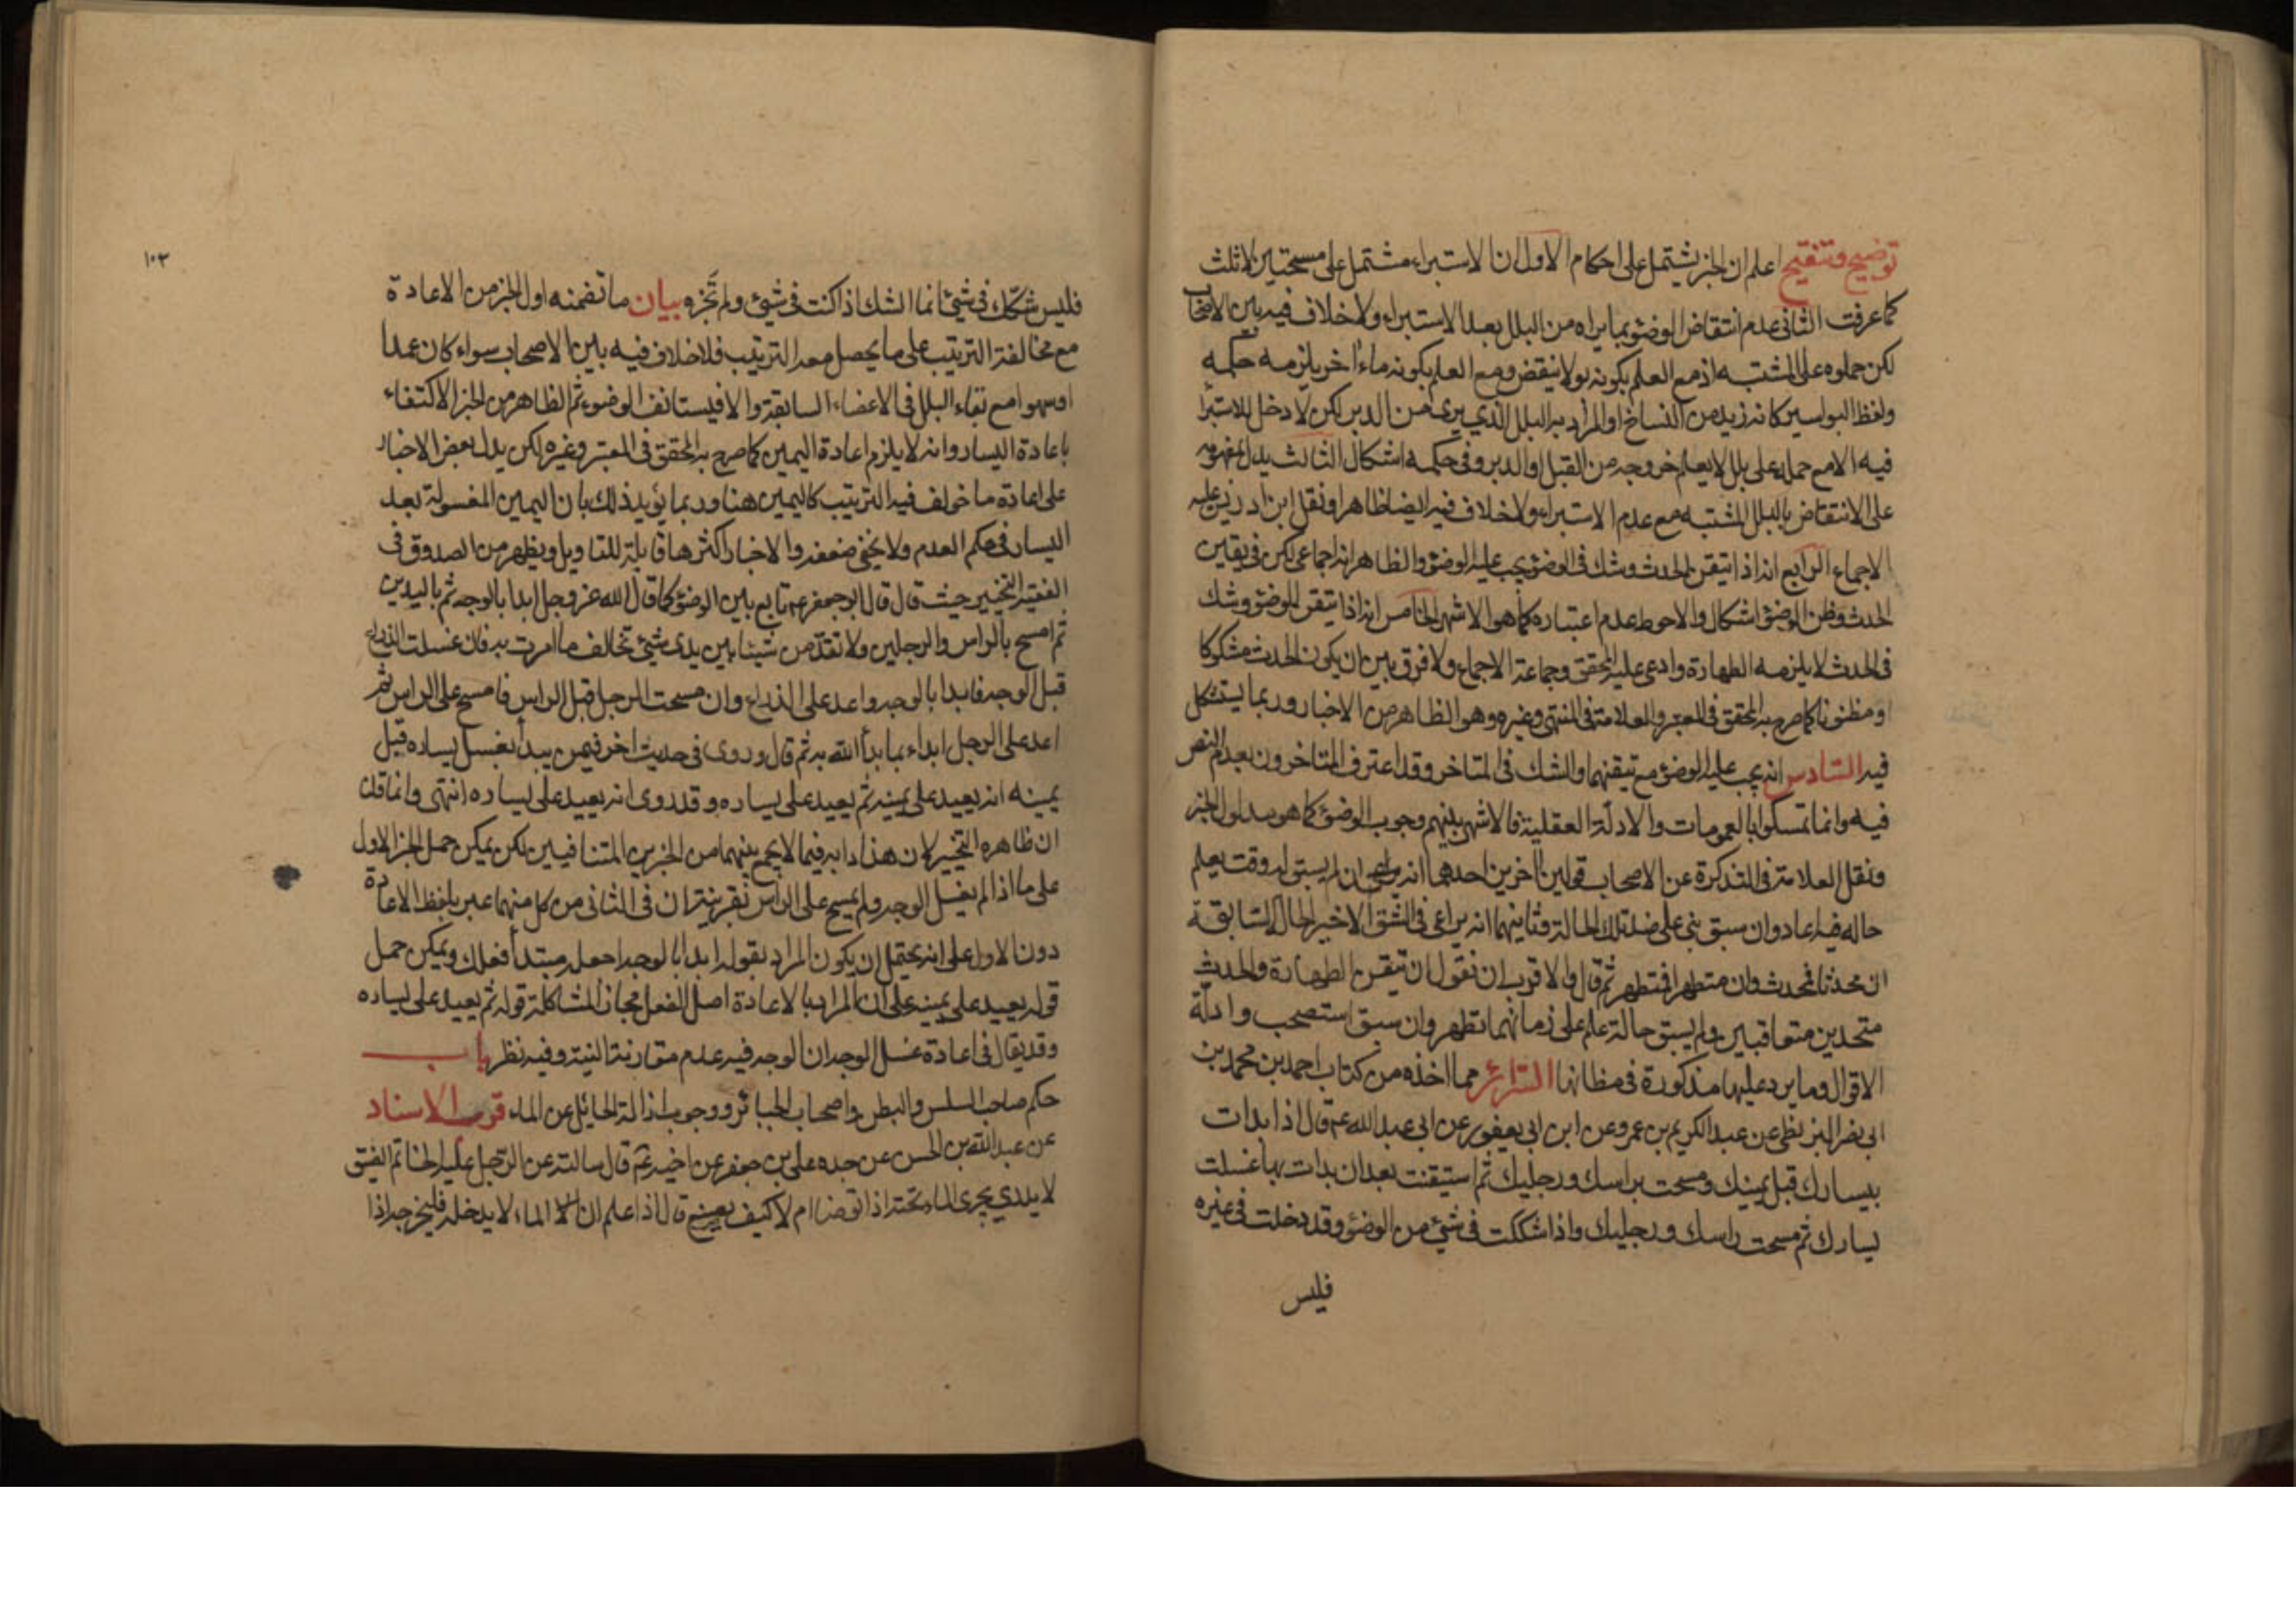 توضيح وتنقيح اعلم ان الخبر يشتمل على احكام الاول ان الاستبراء مشتمل على مسحتين لا ثلث
كما عرفت الثاني عدم انتقاض الوضوء بما يراه من البلل بعد الاستبراء ولا خلاف فيه بين الاصحاب
لكن حملوه على المشتبه اذ مع العلم بكونه بولا ينقض ومع العلم بكونه ماءً اخر يلزمه حكمه
ولفظ البواسير كانه زيد من النساخ او المراد به البلل الذي يرى من الدبر لكن لا دخل للاستبرا
فيه الا مع حمله على بلل لا يعلم خروجه من القبل او الدبر وفي حكمه اشكال الثالث يدل بمفهومه
على الانتقاض بالبلل المشتبه مع عدم الاستبراء ولا خلاف فيه ايضا ظاهرا ونقل ابن ادريس عليه
الاجماع الرابع انه اذا تيقن الحدث وشك في الوضوء يجب عليه الوضوء والظاهر انه اجماعي لكن في يقين
الحدث وظن الوضوء اشكال والاحوط عدم اعتباره كما هو الاشهر الخامس انه اذا تيقن الوضوء وشك
في الحدث لا يلزمه الطهارة وادعى عليه المحقق وجماعة الاجماع ولا فرق بين ان يكون الحدث مشكوكا
او مظنونا كما صرح به المحقق في المعتبر والعلامة في المنتهى وغيره وهو الظاهر من الاخبار وربما يستشكل
فيه السادس انه يجب عليه الوضوء مع تيقنهما والشك في المتاخر وقد اعترف المتاخرون بعدم النص
فيه وانما تمسكوا بالعمومات والادلة العقلية فالاشهر بينهم وجوب الوضوء كما هو مدلول الخبر
ونقل العلامة في التذكرة عن الاصحاب قولين اخرين احدهما انه ان لم يسبق له وقت يعلم
حاله فيه اعاد وان سبق بنى على ضد تلك الحالة وثانيهما انه يراعى في الشق الاخير الحال السابقة
ان محدثا فمحدث وان متطهرا فمتطهر ثم قال والاقرب ان نقول ان تيقن الطهارة والحدث
متحدين متعاقبين ولم يسبق حالة علم على زمانهما تطهر وان سبق استصحب وادلة
الاقوال وما يرد عليها مذكورة في مظانها السرائر مما اخذه من كتاب احمد بن محمد بن
ابي نصر البزنطي عن عبد الكريم بن عمرو عن ابن ابي يعفور عن ابي عبد الله ع قال اذا بدات
بيسارك قبل يمينك ومسحت براسك ورجليك ثم استيقنت بعد ان بدات بها غسلت
يسارك ثم مسحت راسك ورجليك واذا شككت في شيء من الوضوء وقد دخلت في غيره
فليس
١٠٢
فليس شكك في شيء انما الشك اذا كنت في شيء ولم تجزه بيان ما تضمنه اول الخبر من الاعادة
مع مخالفة الترتيب على ما يحصل معه الترتيب فلا خلاف فيه بين الاصحاب سواء كان عمدا
او سهوا مع بقاء البلل في الاعضاء السابقة والا فيستانف الوضوء ثم الظاهر من الخبر الاكتفاء
باعادة اليسار وانه لا يلزم اعادة اليمين كما صرح به المحقق في المعتبر وغيره لكن يدل بعض الاخبار
على اعادة ما خولف فيه الترتيب كاليمين هنا وربما يؤيد ذلك بان اليمين المغسولة بعد
اليسار في حكم العدم ولا يخفى ضعفه والاخبار اكثرها قابلة للتاويل ويظهر من الصدوق في
الفقيه التخيير حيث قال قال ابو جعفر ع تابع بين الوضوء كما قال الله عز وجل ابدا بالوجه ثم باليدين
ثم امسح بالراس والرجلين ولا تقدمن شيئا بين يدي شيء تخالف ما امرت به فان غسلت الذراع
قبل الوجه فابدا بالوجه واعد على الذراع وان مسحت الرجل قبل الراس فامسح على الراس ثم
اعد على الرجل ابداء بما بدأ الله به ثم قال وروى في حديث اخر فيمن يبدأ بغسل يساره قبل
يمينه انه يعيد على يمينه ثم يعيد على يساره وقد روى انه يعيد على يساره انتهى وانما قلنا
ان ظاهره التخيير لان هذا دابه فيما لا يجمع بينهما من الخبرين المتنافيين لكن يمكن حمل الخبر الاول
على ما اذا لم يغسل الوجه ولم يمسح على الراس بقرينة ان في الثاني من كل منهما عبر بلفظ الاعادة
دون الاول على انه يحتمل ان يكون المراد بقوله ابدا بالوجه اجعله مبتدأ فعلك ويمكن حمل
قوله يعيد على يمينه على ان المراد بالاعادة اصل الفعل مجازا لمشاكلة قوله ثم يعيد على يساره
وقد يقال في اعادة غسل الوجه ان الوجه فيه عدم مقارنة النية وفيه نظر باب
حكم صاحب السلس والبطن واصحاب الجبائر ووجوب ازالة الحائل عن الماء قرب الاسناد
عن عبد الله بن الحسن عن جده علي بن جعفر عن اخيه ع قال سالته عن الرجل عليه الخاتم الضيق
لا يدري يجري الماء تحته اذا توضا ام لا كيف يصنع قال اذا علم ان الماء لا يدخله فليخرجه اذا